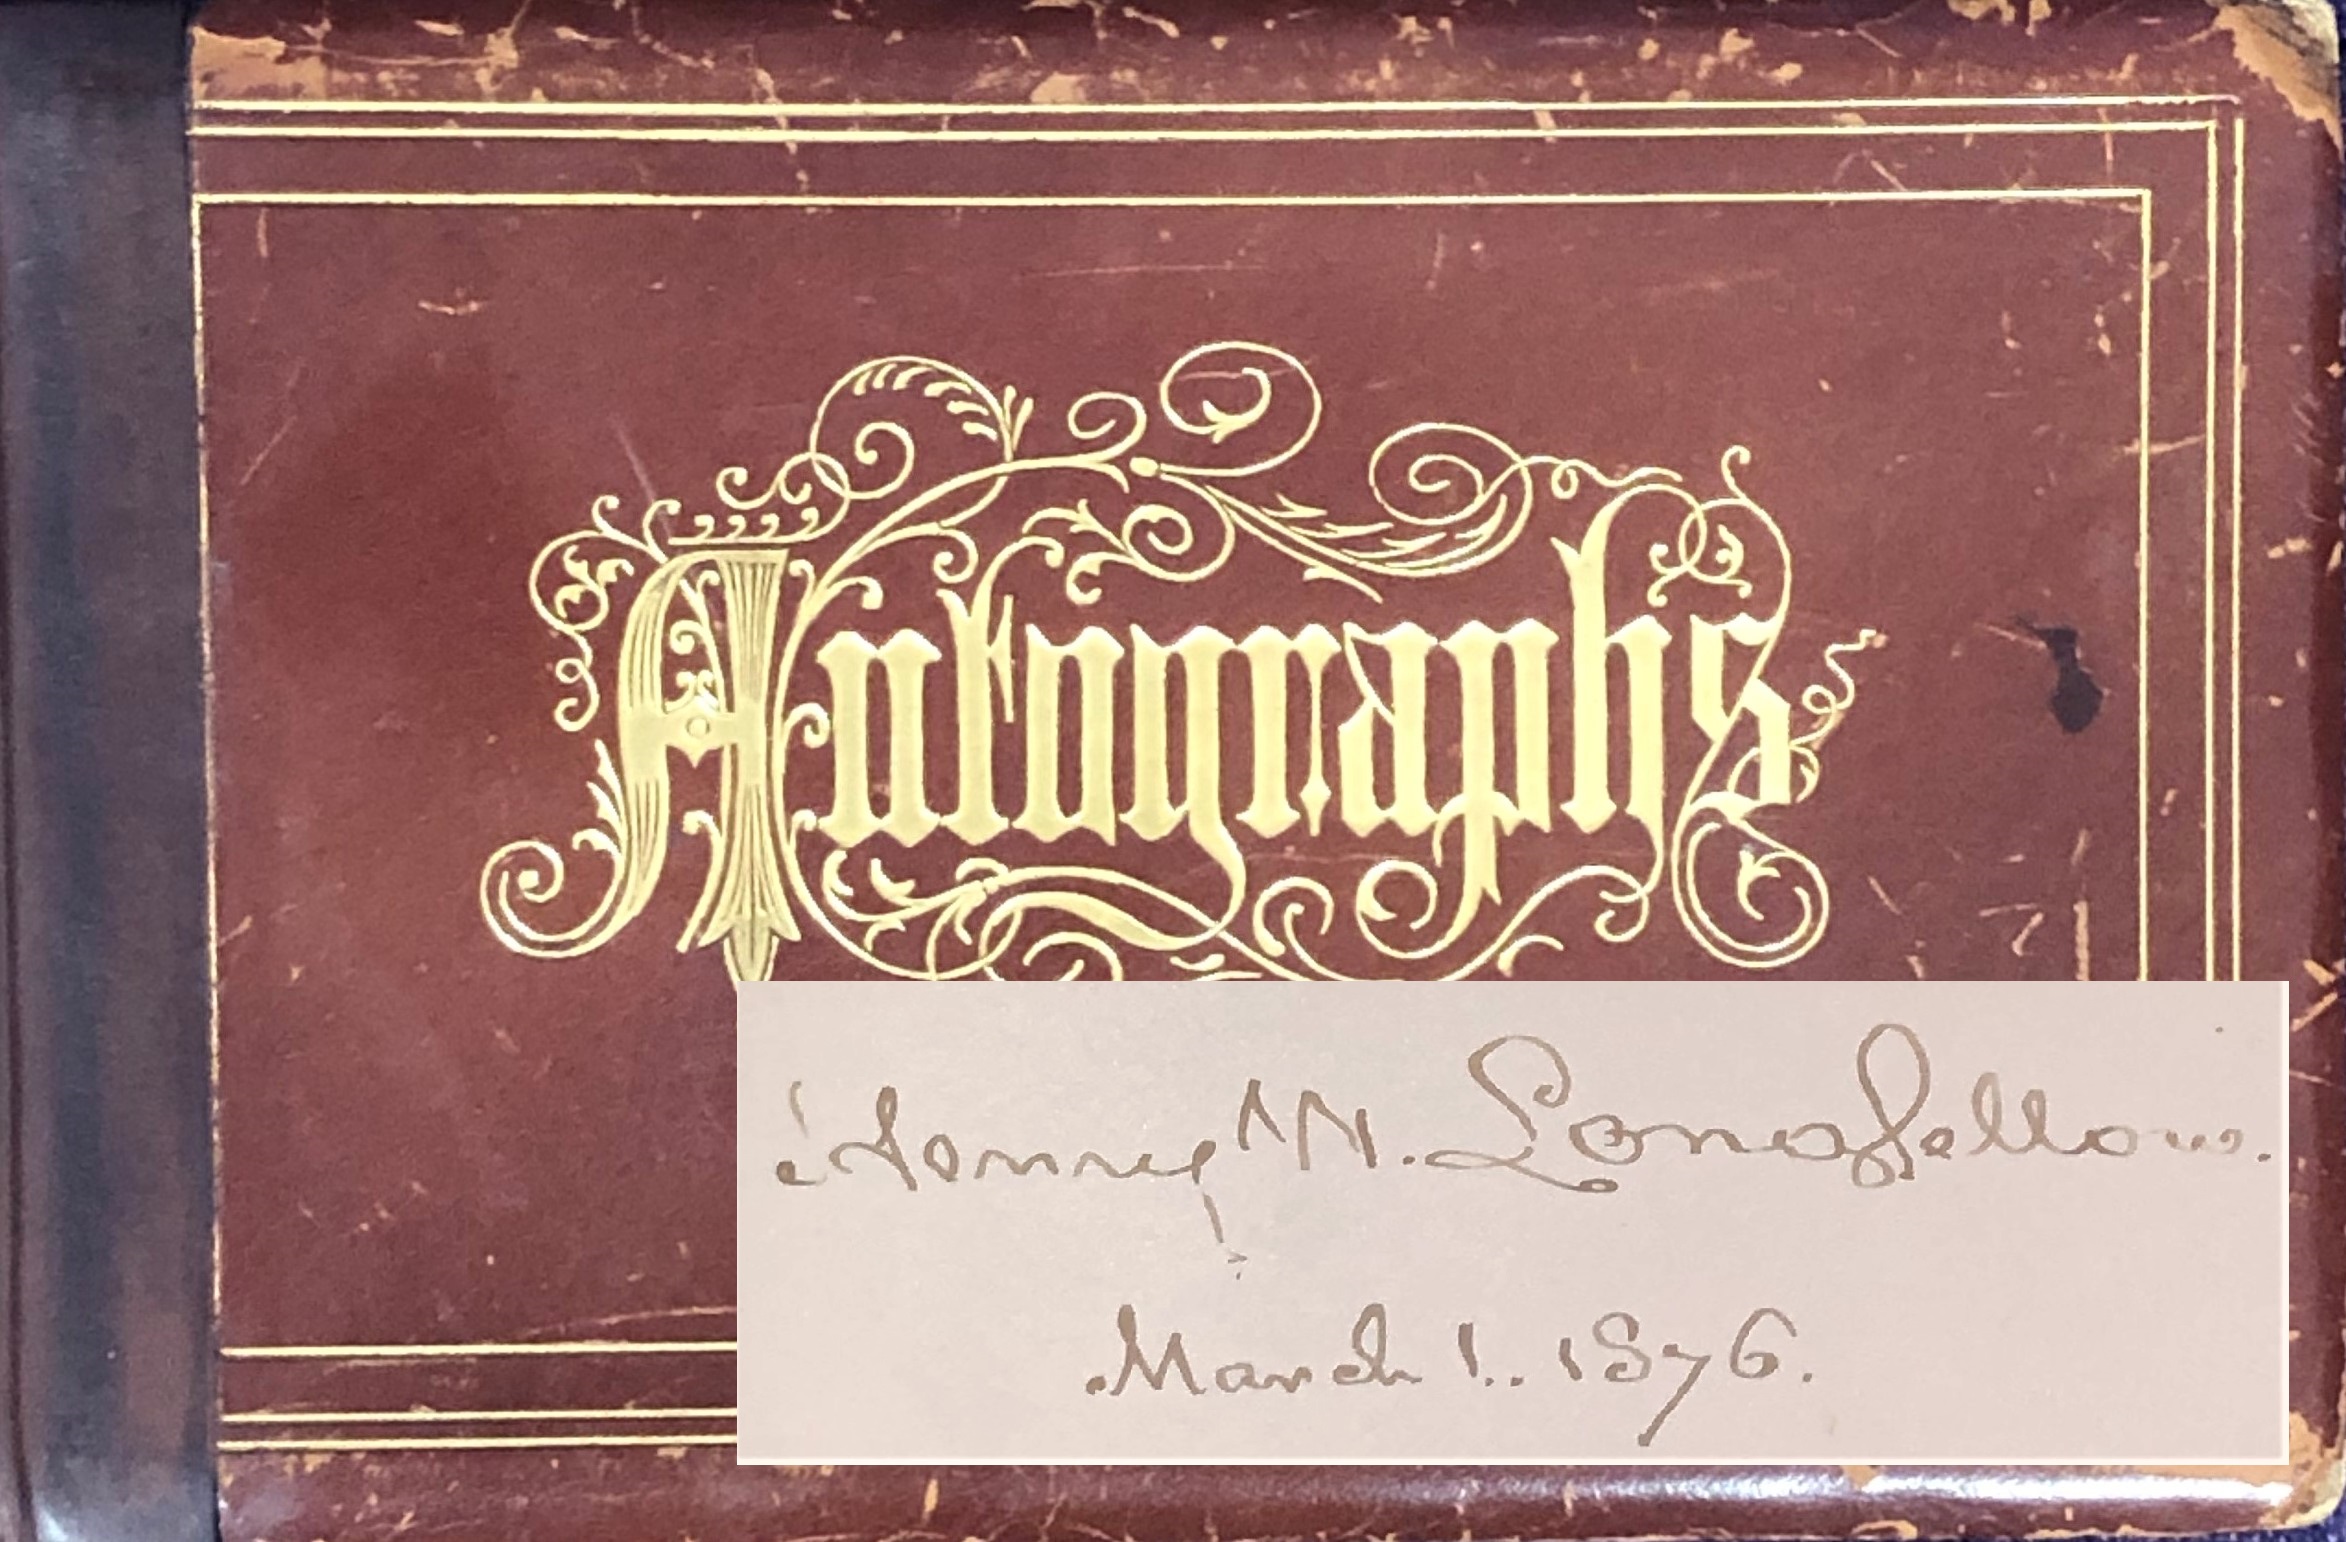 Autographs
Henry W. Longfellow.
March 1. 1876.